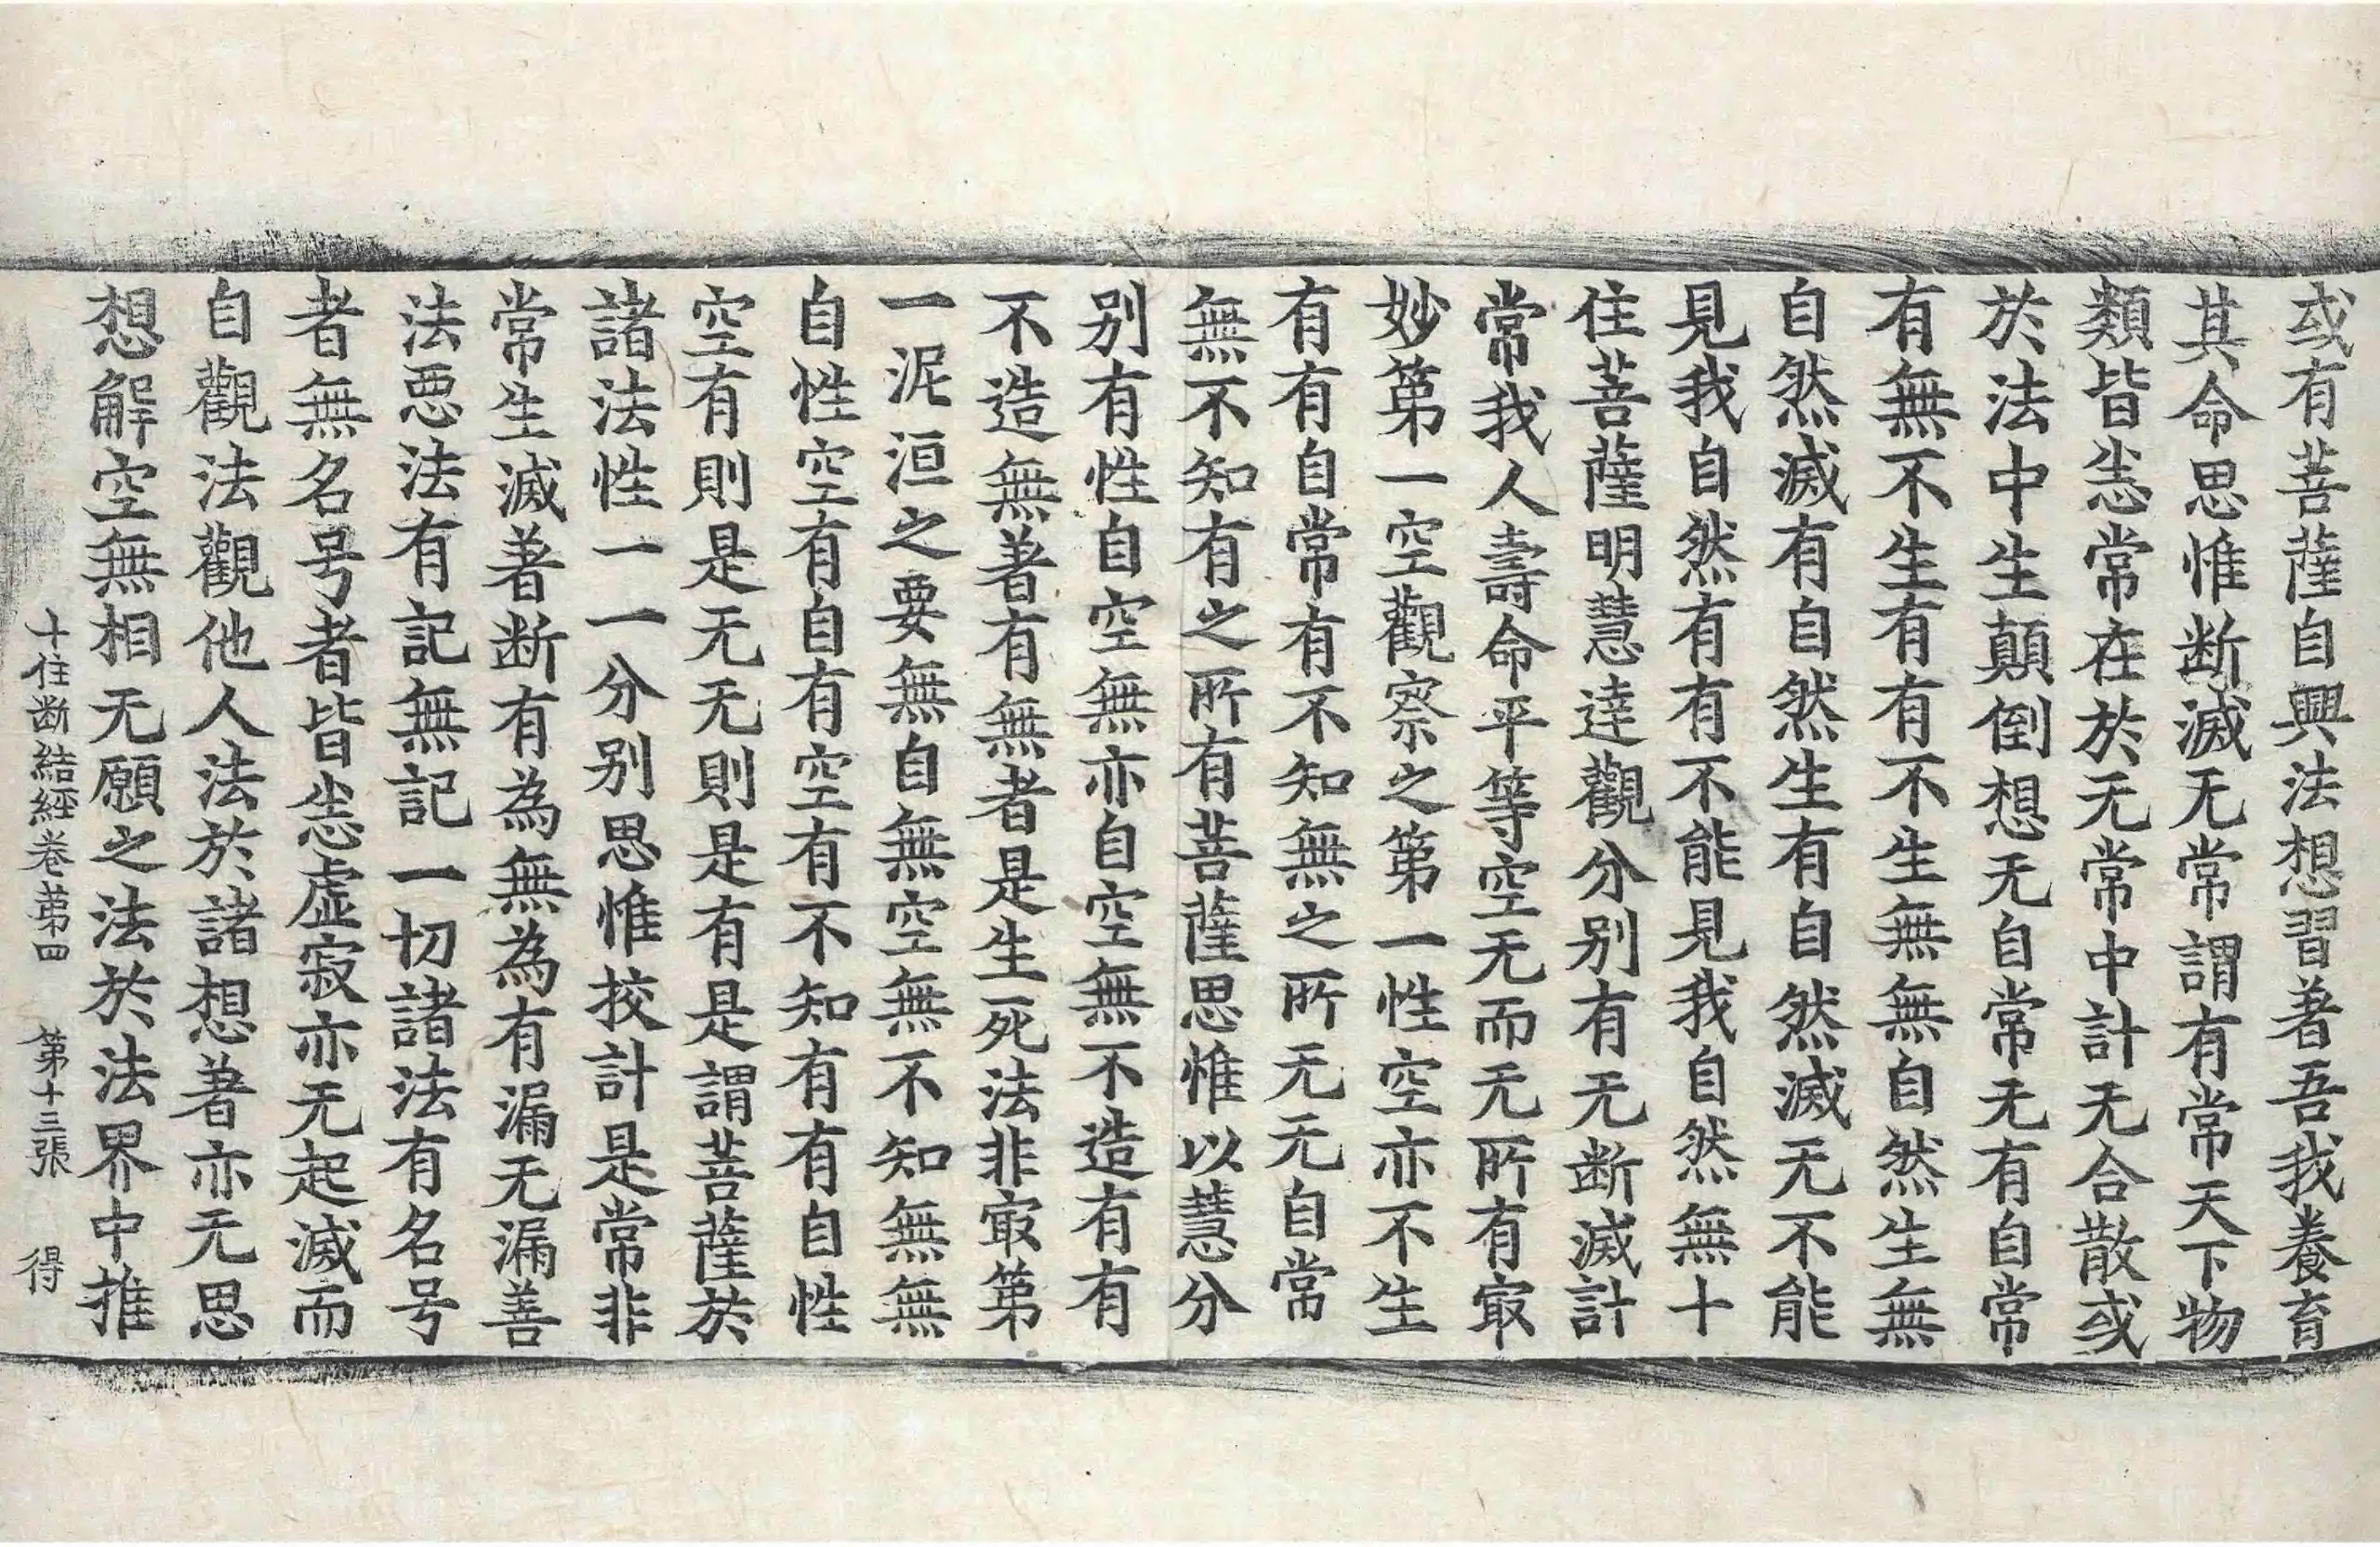 或有菩薩自興法想習著吾我養育
其命思惟断滅无常謂有常天下物
類皆悉常在於无常中計无合散或
於法中生顛倒想无自常无有自常
有無不生有有不生無無自然生無
自然滅有自然生有自然滅无不能
見我自然有有不能見我自然無十
住菩薩明慧達觀分别有无断滅計
常我人壽命平等空无而无所有㝡
妙第一空觀察之第一性空亦不生
有有自常有不知無之所无无自常
無不知有之所有菩薩思惟以慧分
别有性自空無亦自空無不造有有
不造無著有無者是生死法非㝡第
一泥洹之要無自無空無不知無無
自性空有自有空有不知有有自性
空有則是无无則是有是謂菩薩於
諸法性一一分别思惟挍計是常非
常生滅著断有為無為有漏无漏善
法悪法有記無記一切諸法有名号
者無名号者皆悉虚寂亦无起滅而
自觀法觀他人法於諸想著亦无思
想解空無相无願之法於法界中推
十住断結經卷第四 第十三張 得